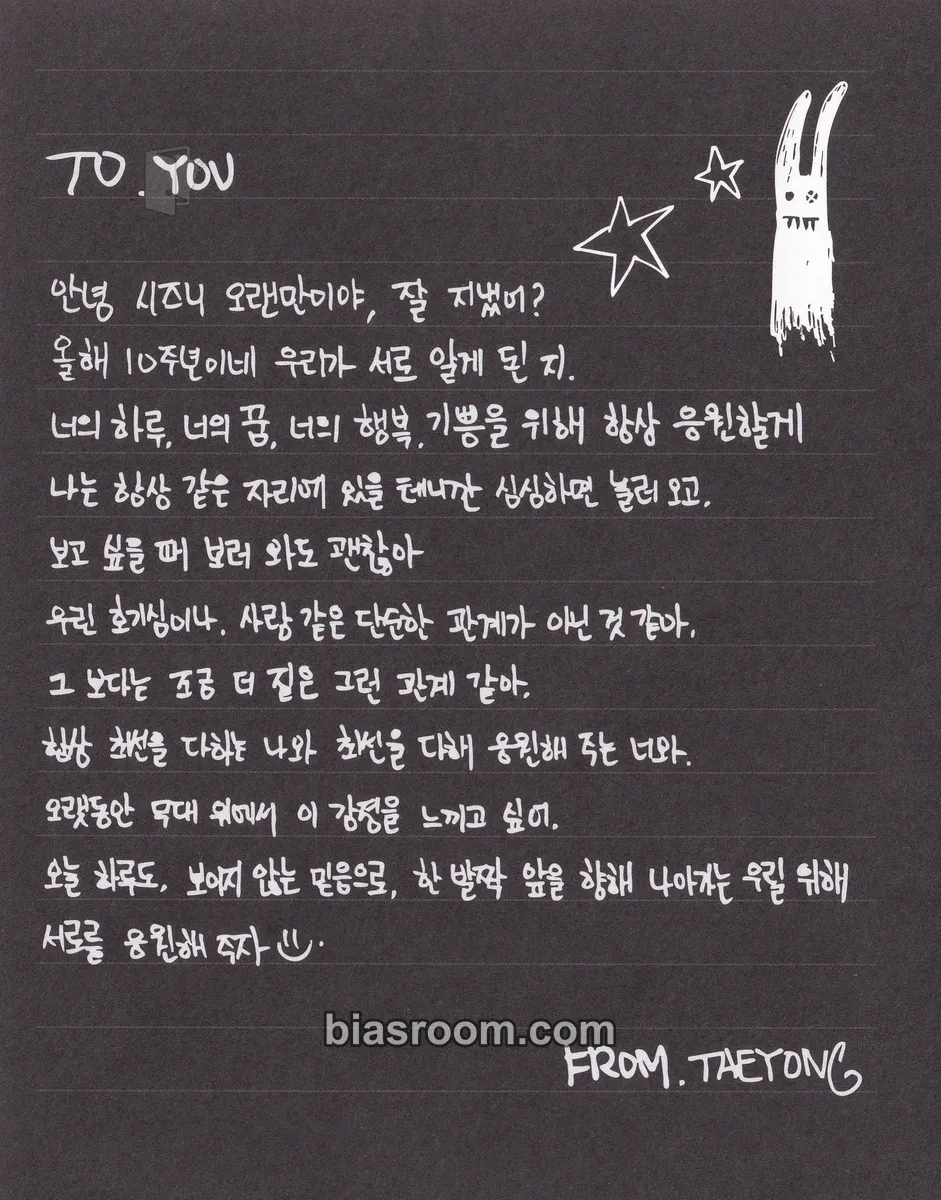 TO. YOU
안녕 시즈니 오랜만이야, 잘 지냈어?
올해 10주년이네 우리가 서로 알게 된 지.
너의 하루, 너의 꿈, 너의 행복, 기쁨을 위해 항상 응원할게
나는 항상 같은 자리에 있을 테니깐 심심하면 놀러 오고.
보고 싶을 때 보러 와도 괜찮아
우린 호기심이나, 사랑 같은 단순한 관계가 아닌 것 같아.
그 보다는 조금 더 짙은 그런 관계 같아.
항상 최선을 다하는 나와 최선을 다해 응원해 주는 너와.
오랫동안 무대 위에서 이 감정을 느끼고 싶어.
오늘 하루도, 보이지 않는 믿음으로, 한 발짝 앞을 향해 나아가는 우릴 위해
서로를 응원해 주자
biasroom.com
FROM. TAEYONG